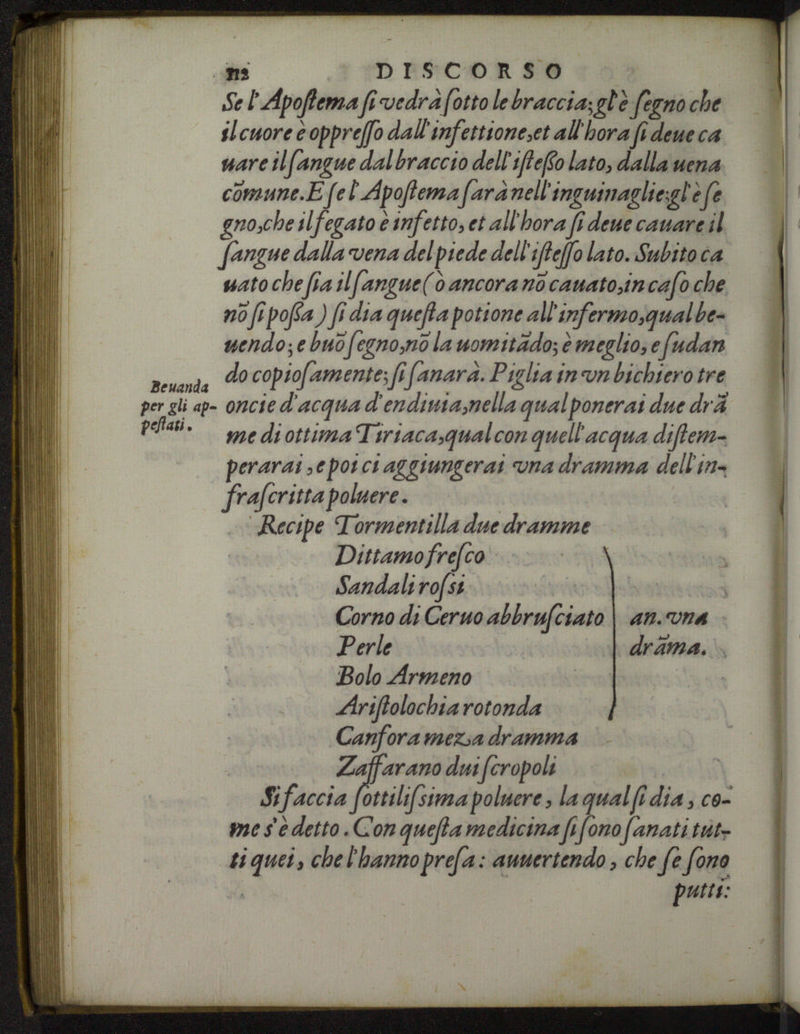 112 DISCORSO
Se l'Apostema si vedrà sotto le braccia; gl'è segno che
il cuore è oppresso dall'infettione, et all'hora si deue ca
uare il sangue dal braccio dell'istesso lato, dalla uena
cõmune. E se l'Apostema sarà nell'inguinaglie; gl'è se
gno, che il fegato è infetto, et all'hora si deue cauare il
sangue dalla vena del piede dell'istesso lato. Subito ca
uato che sia il sangue (ò ancora nõ cauato, in caso che
nõ si possa) si dia questa potione all'infermo, qual be-
uendo; e buõ segno, nõ la uomitãdo; è meglio, e sudan
do copiosamente; si sanarà. Piglia in vn bichiero tre
Beuanda
per gli ap-
pestati.
oncie d'acqua d'endiuia, nella qual ponerai due drã
me di ottima Tiriaca, qual con quell'acqua distem-
perarai, e poi ci aggiungerai vna dramma dell'in-
frascritta poluere.
Recipe Tormentilla due dramme
Dittamo fresco
Sandali rossi
Corno di Ceruo abbrusciato
Perle
Bolo Armeno
Aristolochia rotonda
an. vna
drãma.
Canfora meza dramma
Zaffarano dui scropoli
Si faccia sottilissima poluere, la qual si dia, co-
me s'è detto. Con questa medicina si sono sanati tut-
ti quei, che l'hanno presa: auuertendo, che se sono
putti: